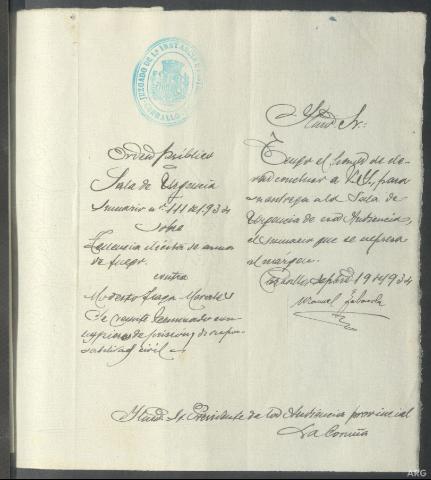 JUZGADO DE 1ª INSTANCIA
CARBALLO
Orden público
Sala de Urgencia
Sumario nº 111 de 1934
sobre
Tenencia ilícita de arma
de fuego
contra
Modesto Fraga Morales
Se remite terminado con
piezas de prisión y de respon
sabilidad civil
Ilmo. Sr.:
Tengo el honor de ele-
var concluso a V.I., para
su entrega a la Sala de
Urgencia de esa Audiencia,
el sumario que se expresa
al margen.
Carballo, Septbre 19 de 1934
Manuel
Ilmo. Sr. Presidente de la Audiencia provincial
La Coruña
ARG